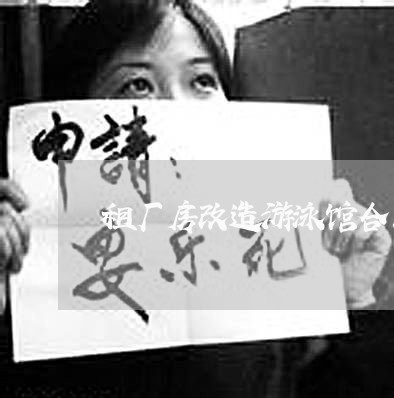 申請：
租厂房改造游泳馆合
安乐死